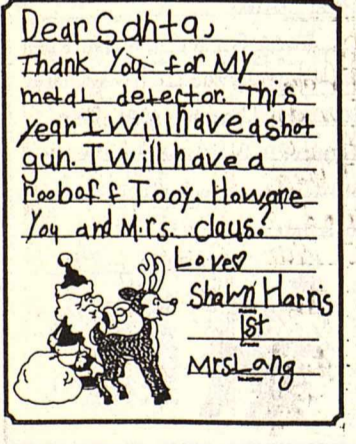 Dear Santa,
Thank You for My
metal detector. This
year I Will have a shot
gun. I Will have a
roobof f Tooy. Howane
You and Mrs. claus?
Love♡
Shawn Harris
Name
1st
Grade
Mrs Lang
Teacher